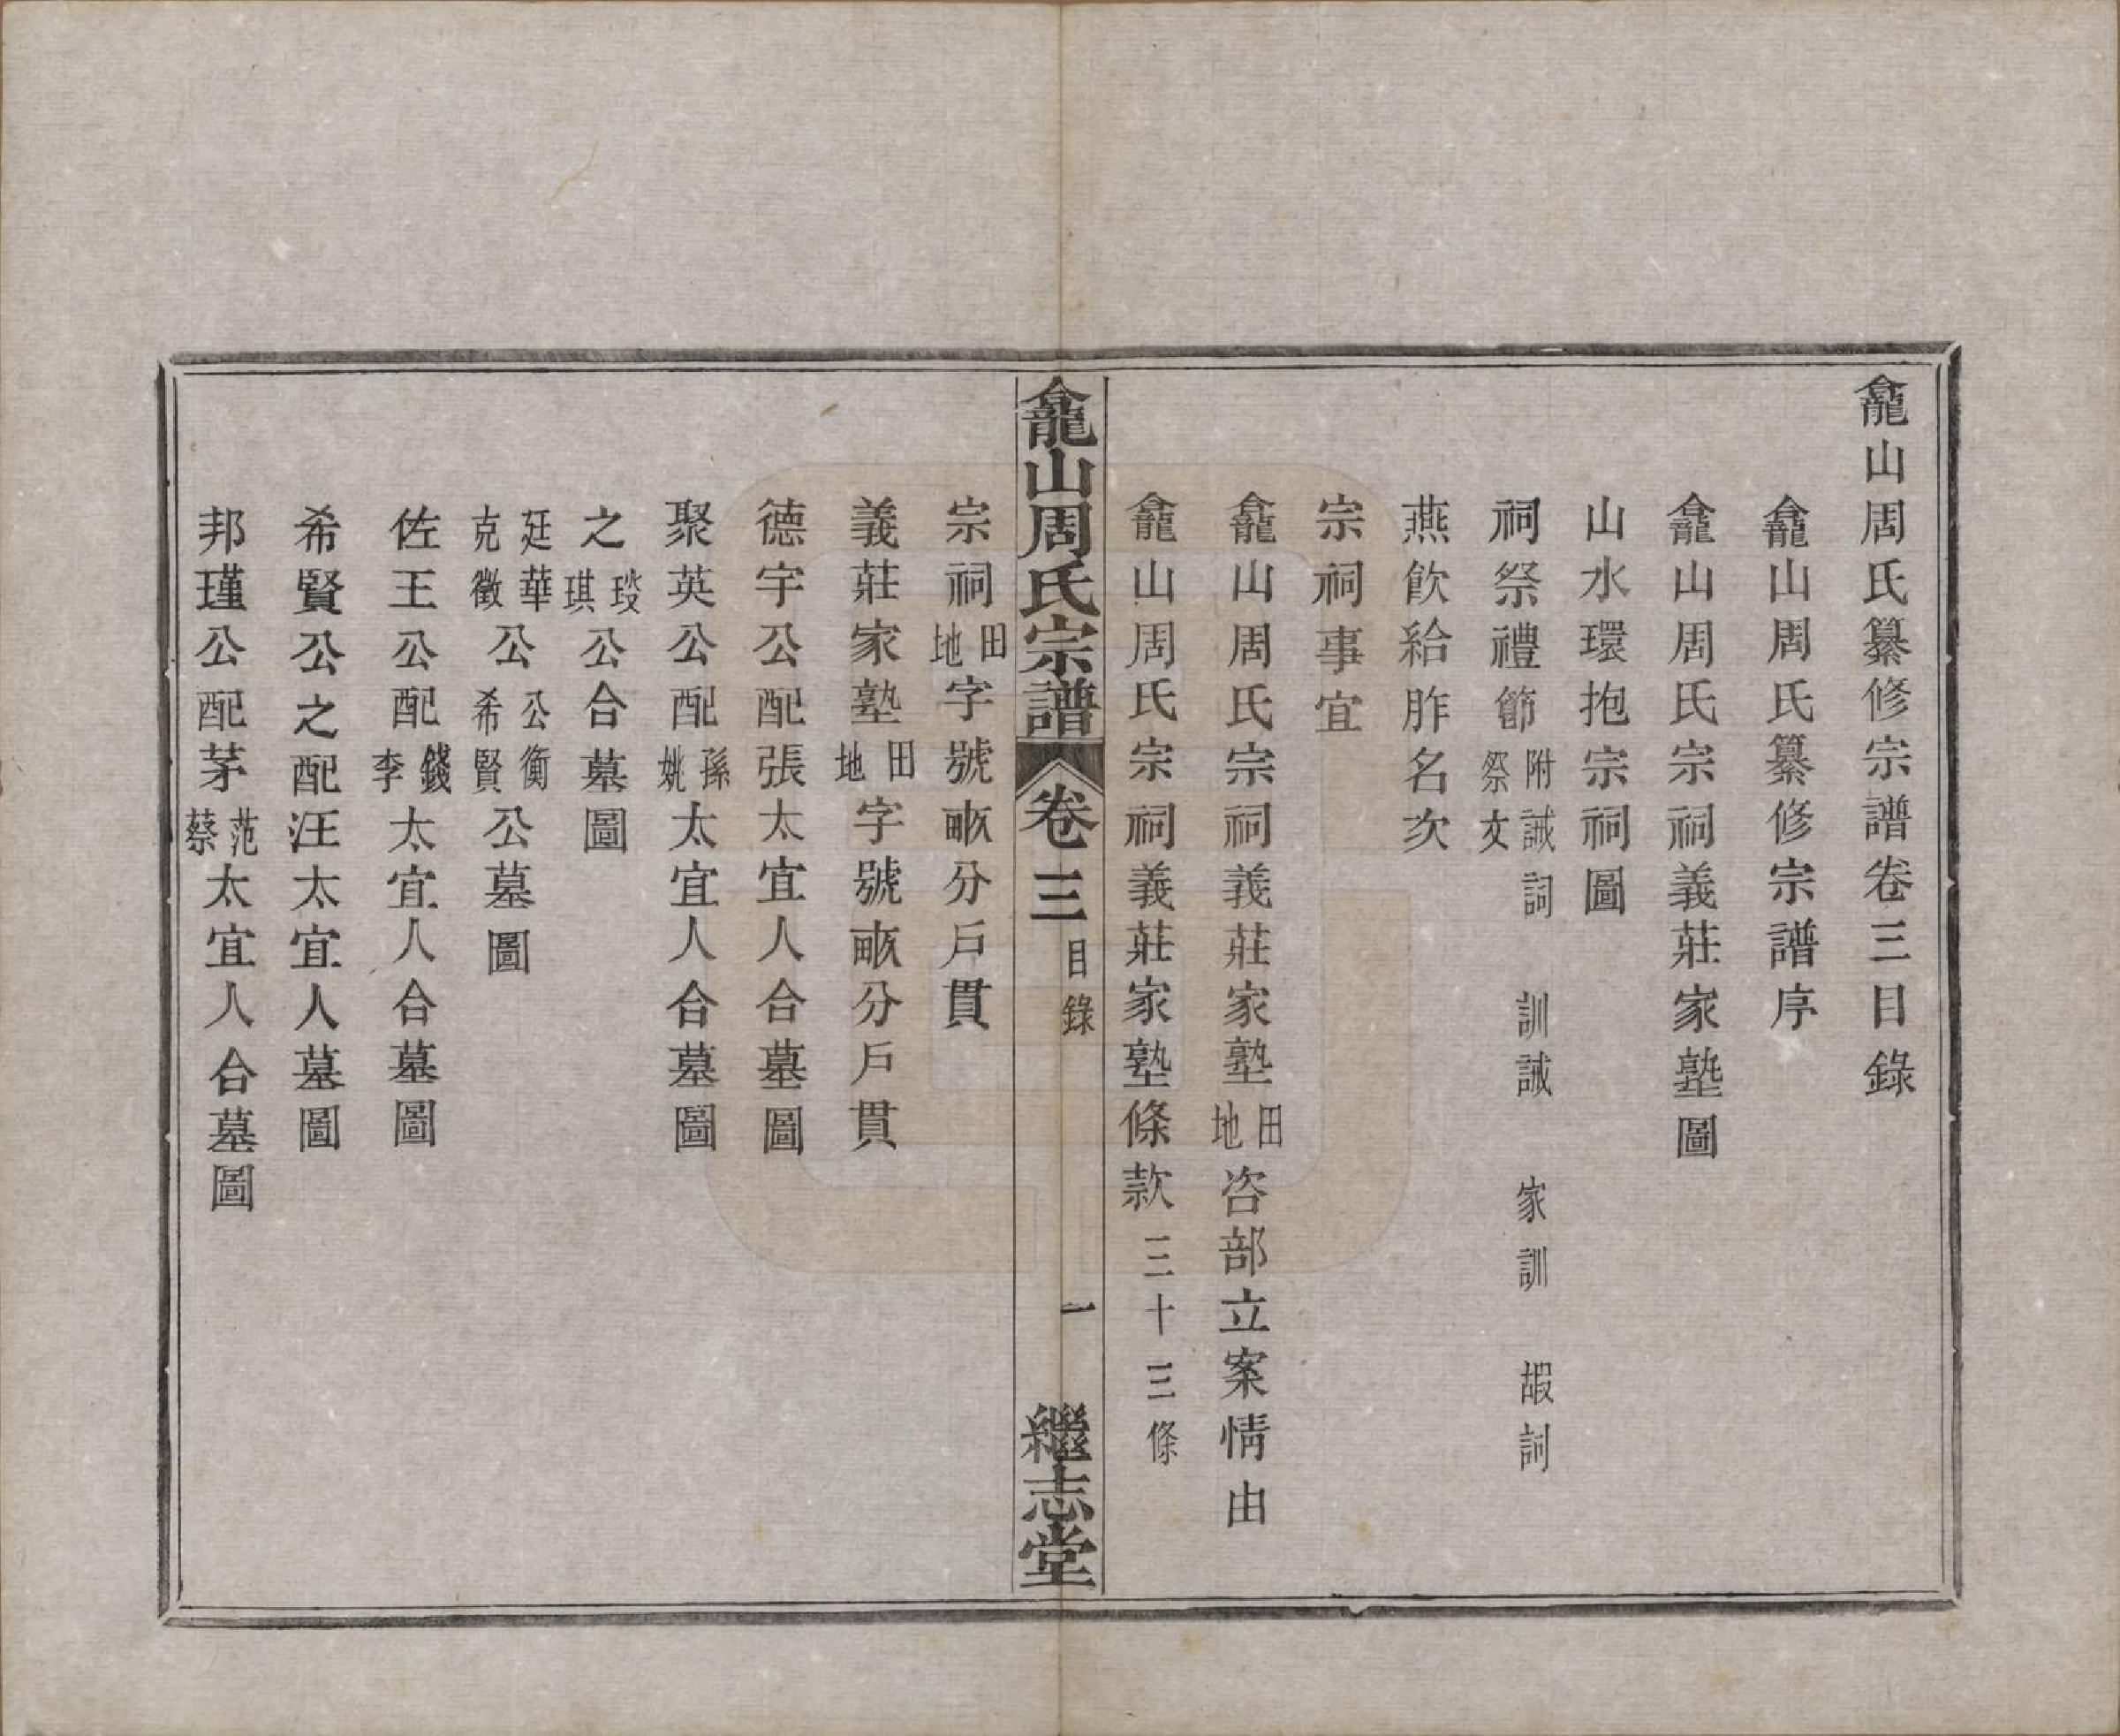 龕山周氏纂修宗譜卷三目錄
龕山周氏纂修宗譜序
龕山周氏宗祠義莊家塾圖
山水環抱宗祠圖
祠祭禮節 附誡詞 訓誡 家訓 嘏詞 祭文
燕飲給胙名次
宗祠事宜
龕山周氏宗祠義莊家塾田地咨部立案情由
龕山周氏宗祠義莊家塾條款三十三條
龕山周氏宗譜 卷三 目錄 一 繼志堂
宗祠田地字號畝分戶貫
義莊家塾田地字號畝分戶貫
德宇公配張太宜人合墓圖
聚英公配孫姚太宜人合墓圖
之琰琪公合墓圖
廷華克徵公公衡希賢公墓圖
佐王公配錢李太宜人合墓圖
希賢公之配汪太宜人墓圖
邦瑾公配茅范蔡太宜人合墓圖